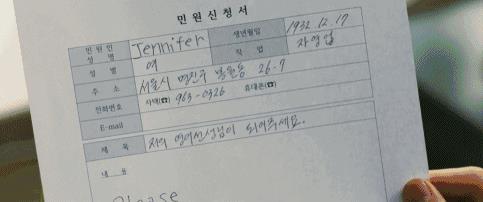 민원신청서
민원인 성명 Jennifer 생년월일 1932. 12. 17
성별 여 직업 자영업
주소 서울시 명진구 봉원동 26-7
전화번호 자택(☎) 963-0326 휴대폰(☎)
E-mail
제목 저의 영어선생님이 되어주세요.
내용
Please